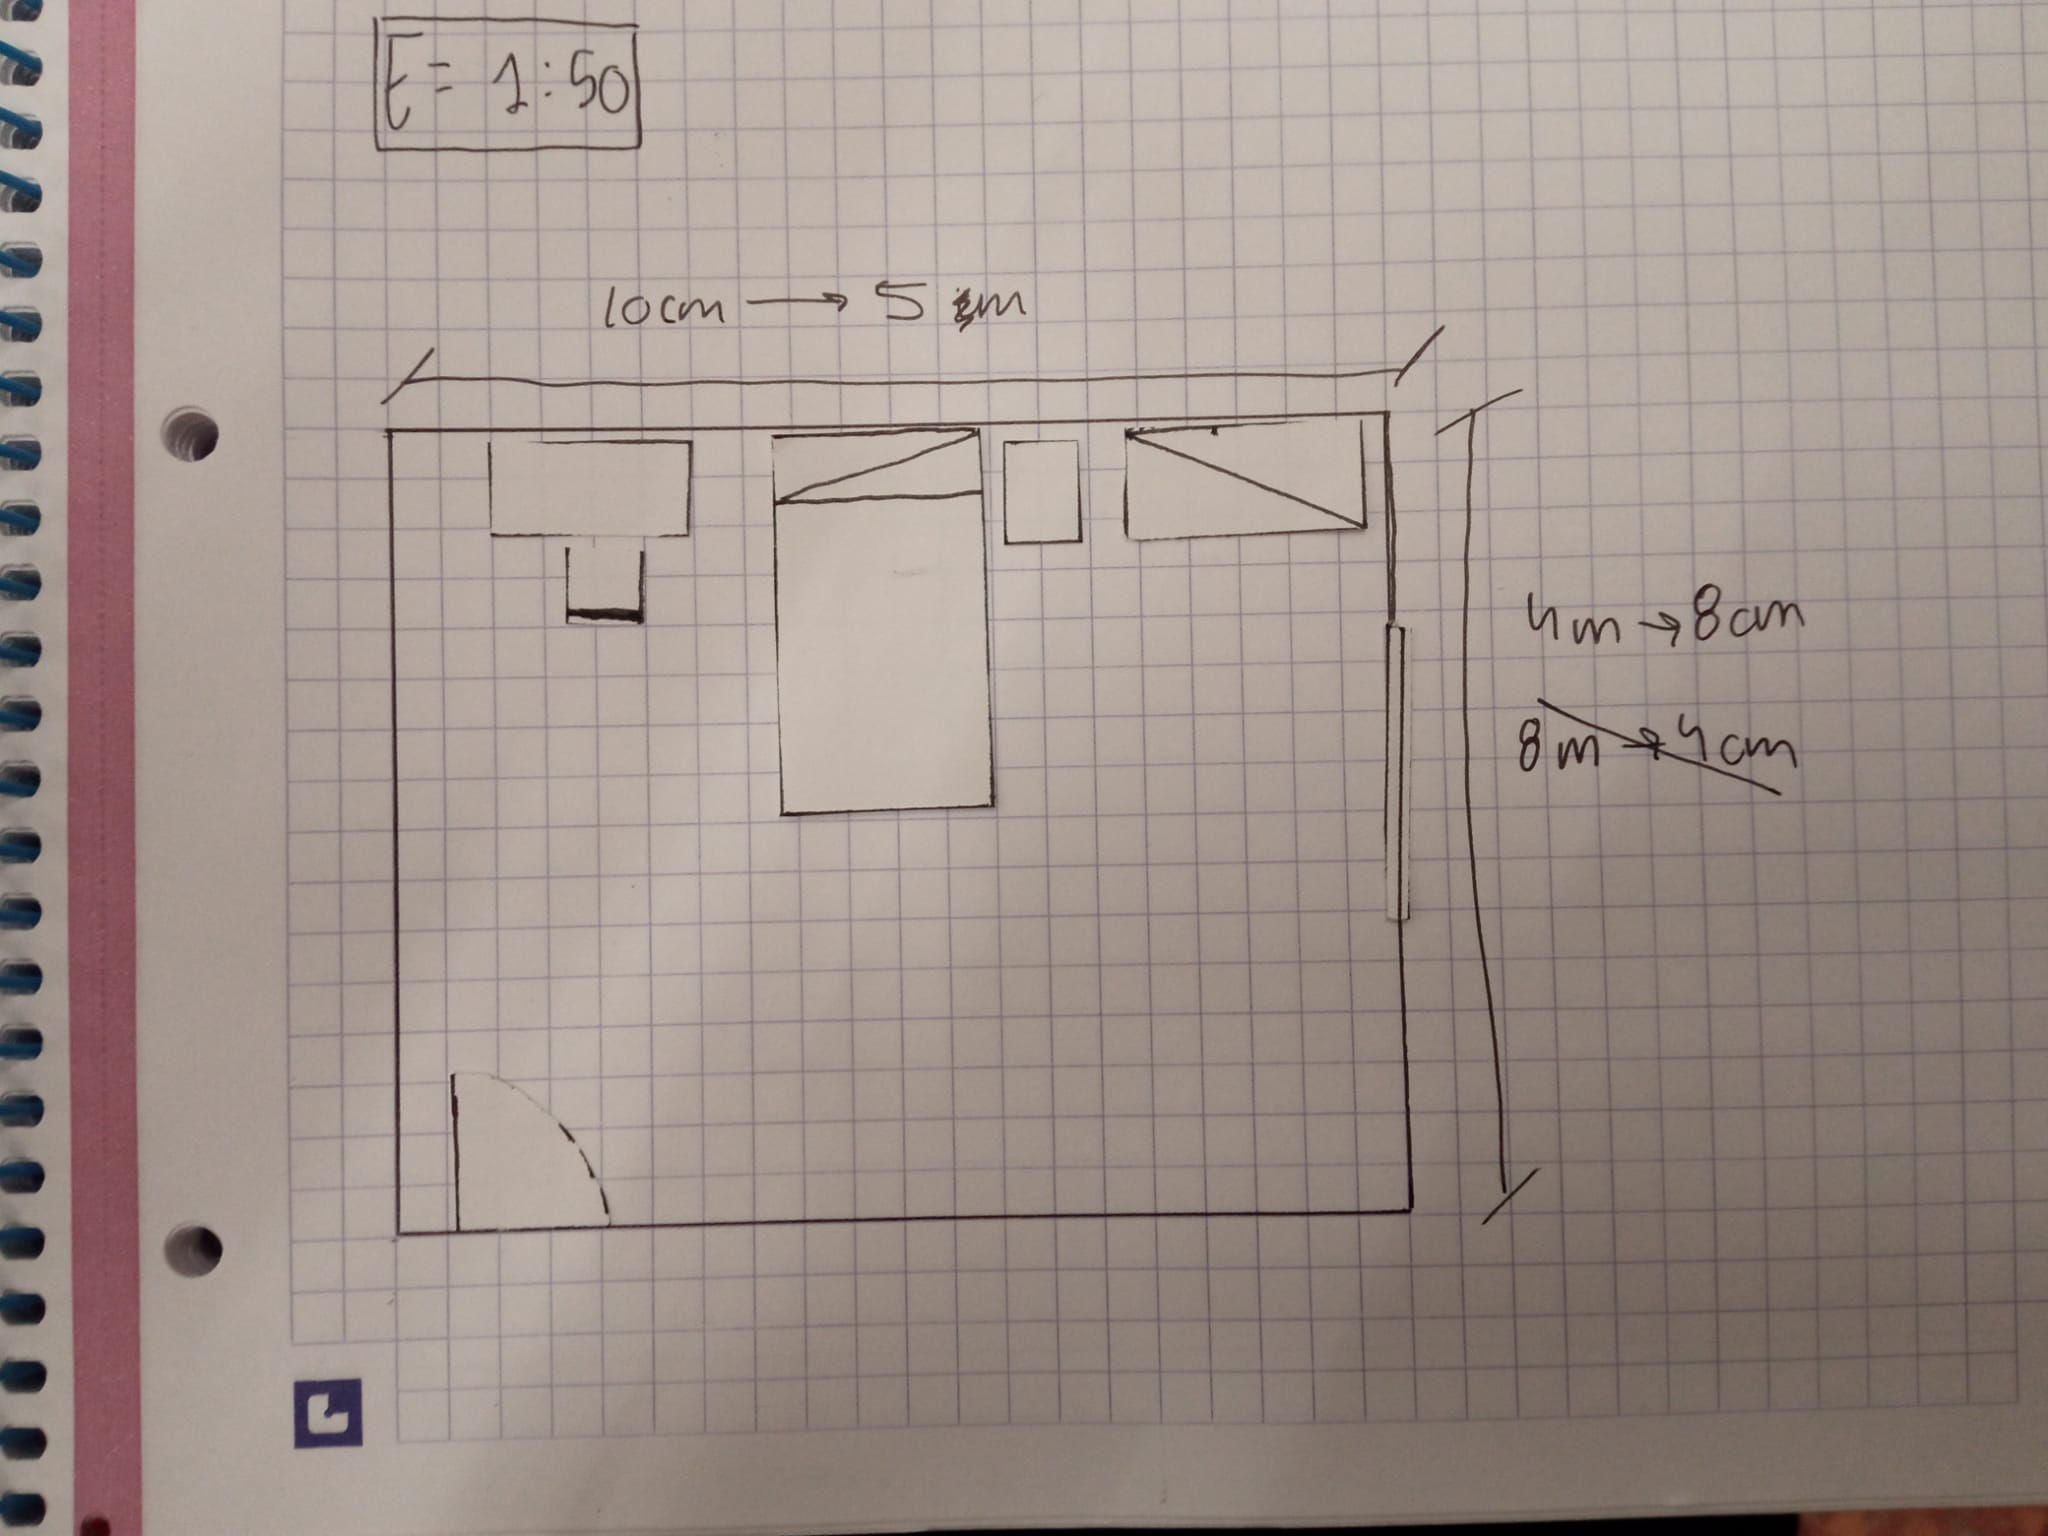 E= 1:50
10cm → 5 m
4m → 8cm
8m → 4cm